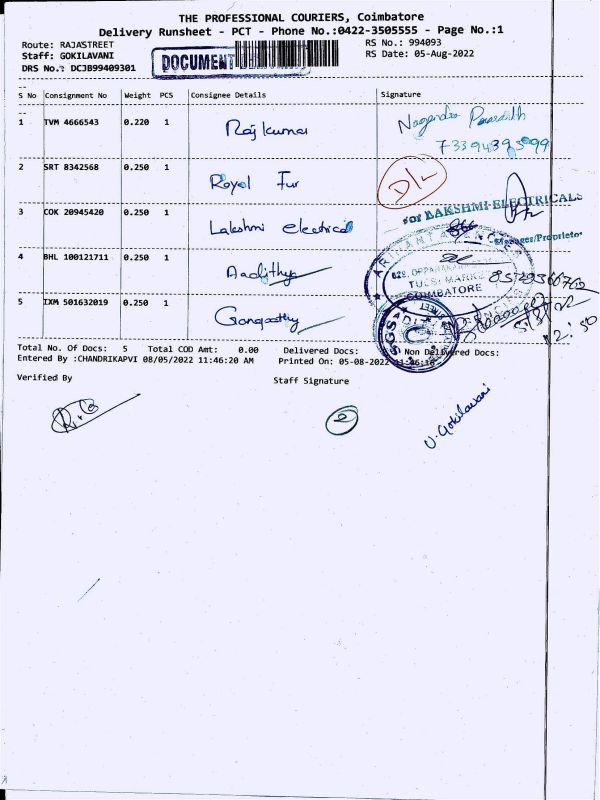 THE PROFESSIONAL COURIERS, Coimbatore
Delivery Runsheet - PCT - Phone No.:0422-3505555 - Page No.:1
Route: RAJASTREET RS No.: 994093
Staff: GOKILAVANI RS Date: 05-Aug-2022
DRS No.: DCJB99409301 DOCUMENT
S No Consignment No Weight PCS Consignee Details Signature
1 TVM 4666543 0.220 1 Rajkumar Nagendra
2 SRT 8342568 0.250 1 Royal Fur D/L
3 COK 20945420 0.250 1 Lakshmi electrical For LAKSHMI ELECTRICALS
Manager/Proprietor
4 BHL 100121711 0.250 1 Aadithya ARIHANT AGENCIES
TULSI MARKET
COIMBATORE
5 IXM 501632019 0.250 1 Gangoathy
12:50
Total No. Of Docs: 5 Total COD Amt: 0.00 Delivered Docs: Non Delivered Docs:
Entered By :CHANDRIKAPVI 08/05/2022 11:46:20 AM Printed On: 05-08-2022 11:46:16
Verified By Staff Signature
2
U. Gokilavani